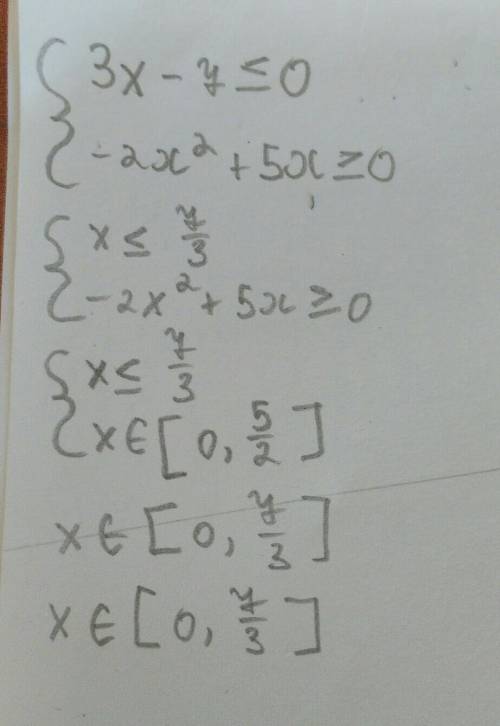 { 3x - 7 ≤ 0
-2x² + 5x ≥ 0
{ x ≤ 7/3
-2x² + 5x ≥ 0
{ x ≤ 7/3
x ∈ [0, 5/2]
x ∈ [0, 7/3]
x ∈ [0, 7/3]